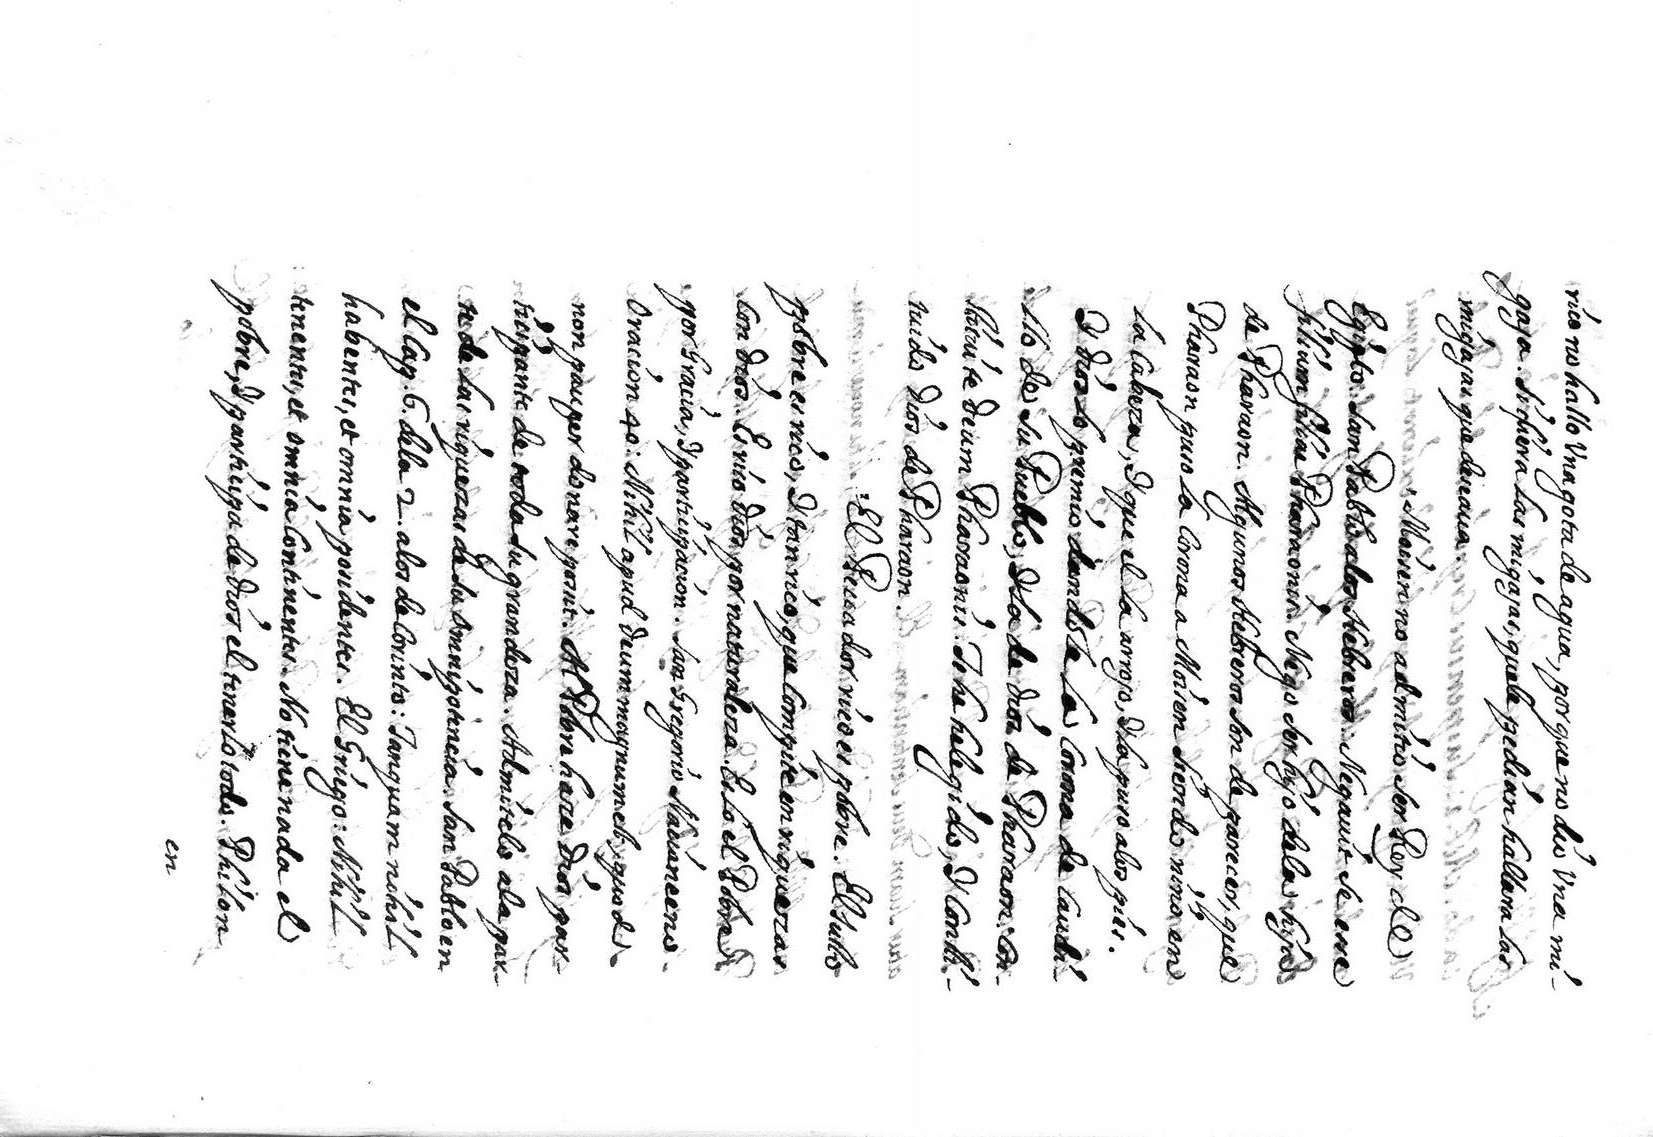 rico no hallo Vna gota de agua, porque no dio Vna mi-
gaja. Si diera las migajas, que le pedian hallara las
migajas que deseaua.
Moisen no admitio ser Rey de
Egipto. San Pablo a los Hebreos. Negauit se esse
filium filiæ Pharaonis. Nego ser hijo de la hija
de Pharaon. Algunos Hebreos son de parecer, que
Pharaon puso la Corona a Moisen siendo niño en
la Cabeza, Y que el la arrojo, Y la puso a los pies.
Y Dios lo premio dandole la Corona de Caudi-
llo de su Pueblo, Y la de Dios de Pharaon: Con-
stitui te Deum Pharaonis. Te he helegido, Y Consti-
tuido Dios de Pharaon.
El Pecador rico es pobre. El Justo
pobre es rico, Y tan rico, que Compite en riquezas
Con Dios. Es rico Dios por naturaleza. Eslo el Pobre
por Gracia, Y partizipacion. San Gregorio Nazianceno.
Oracion 40: Nihil apud Deum magnum est, quod
non pauper donare possit. Al Pobre haze Dios par-
tizipante de toda su grandeza. Admitelo a la par-
te de las riquezas de su omnipotencia. San Pablo en
el Cap. 6. dela 2. a los de Corinto: Tanquam nihil
habentes, et omnia posidentes. El Griego: Nihil
tenentes, et omnia Continentes. No tiene nada el
pobre, Y partizipa de Dios el tenerlo todo. Philon
en